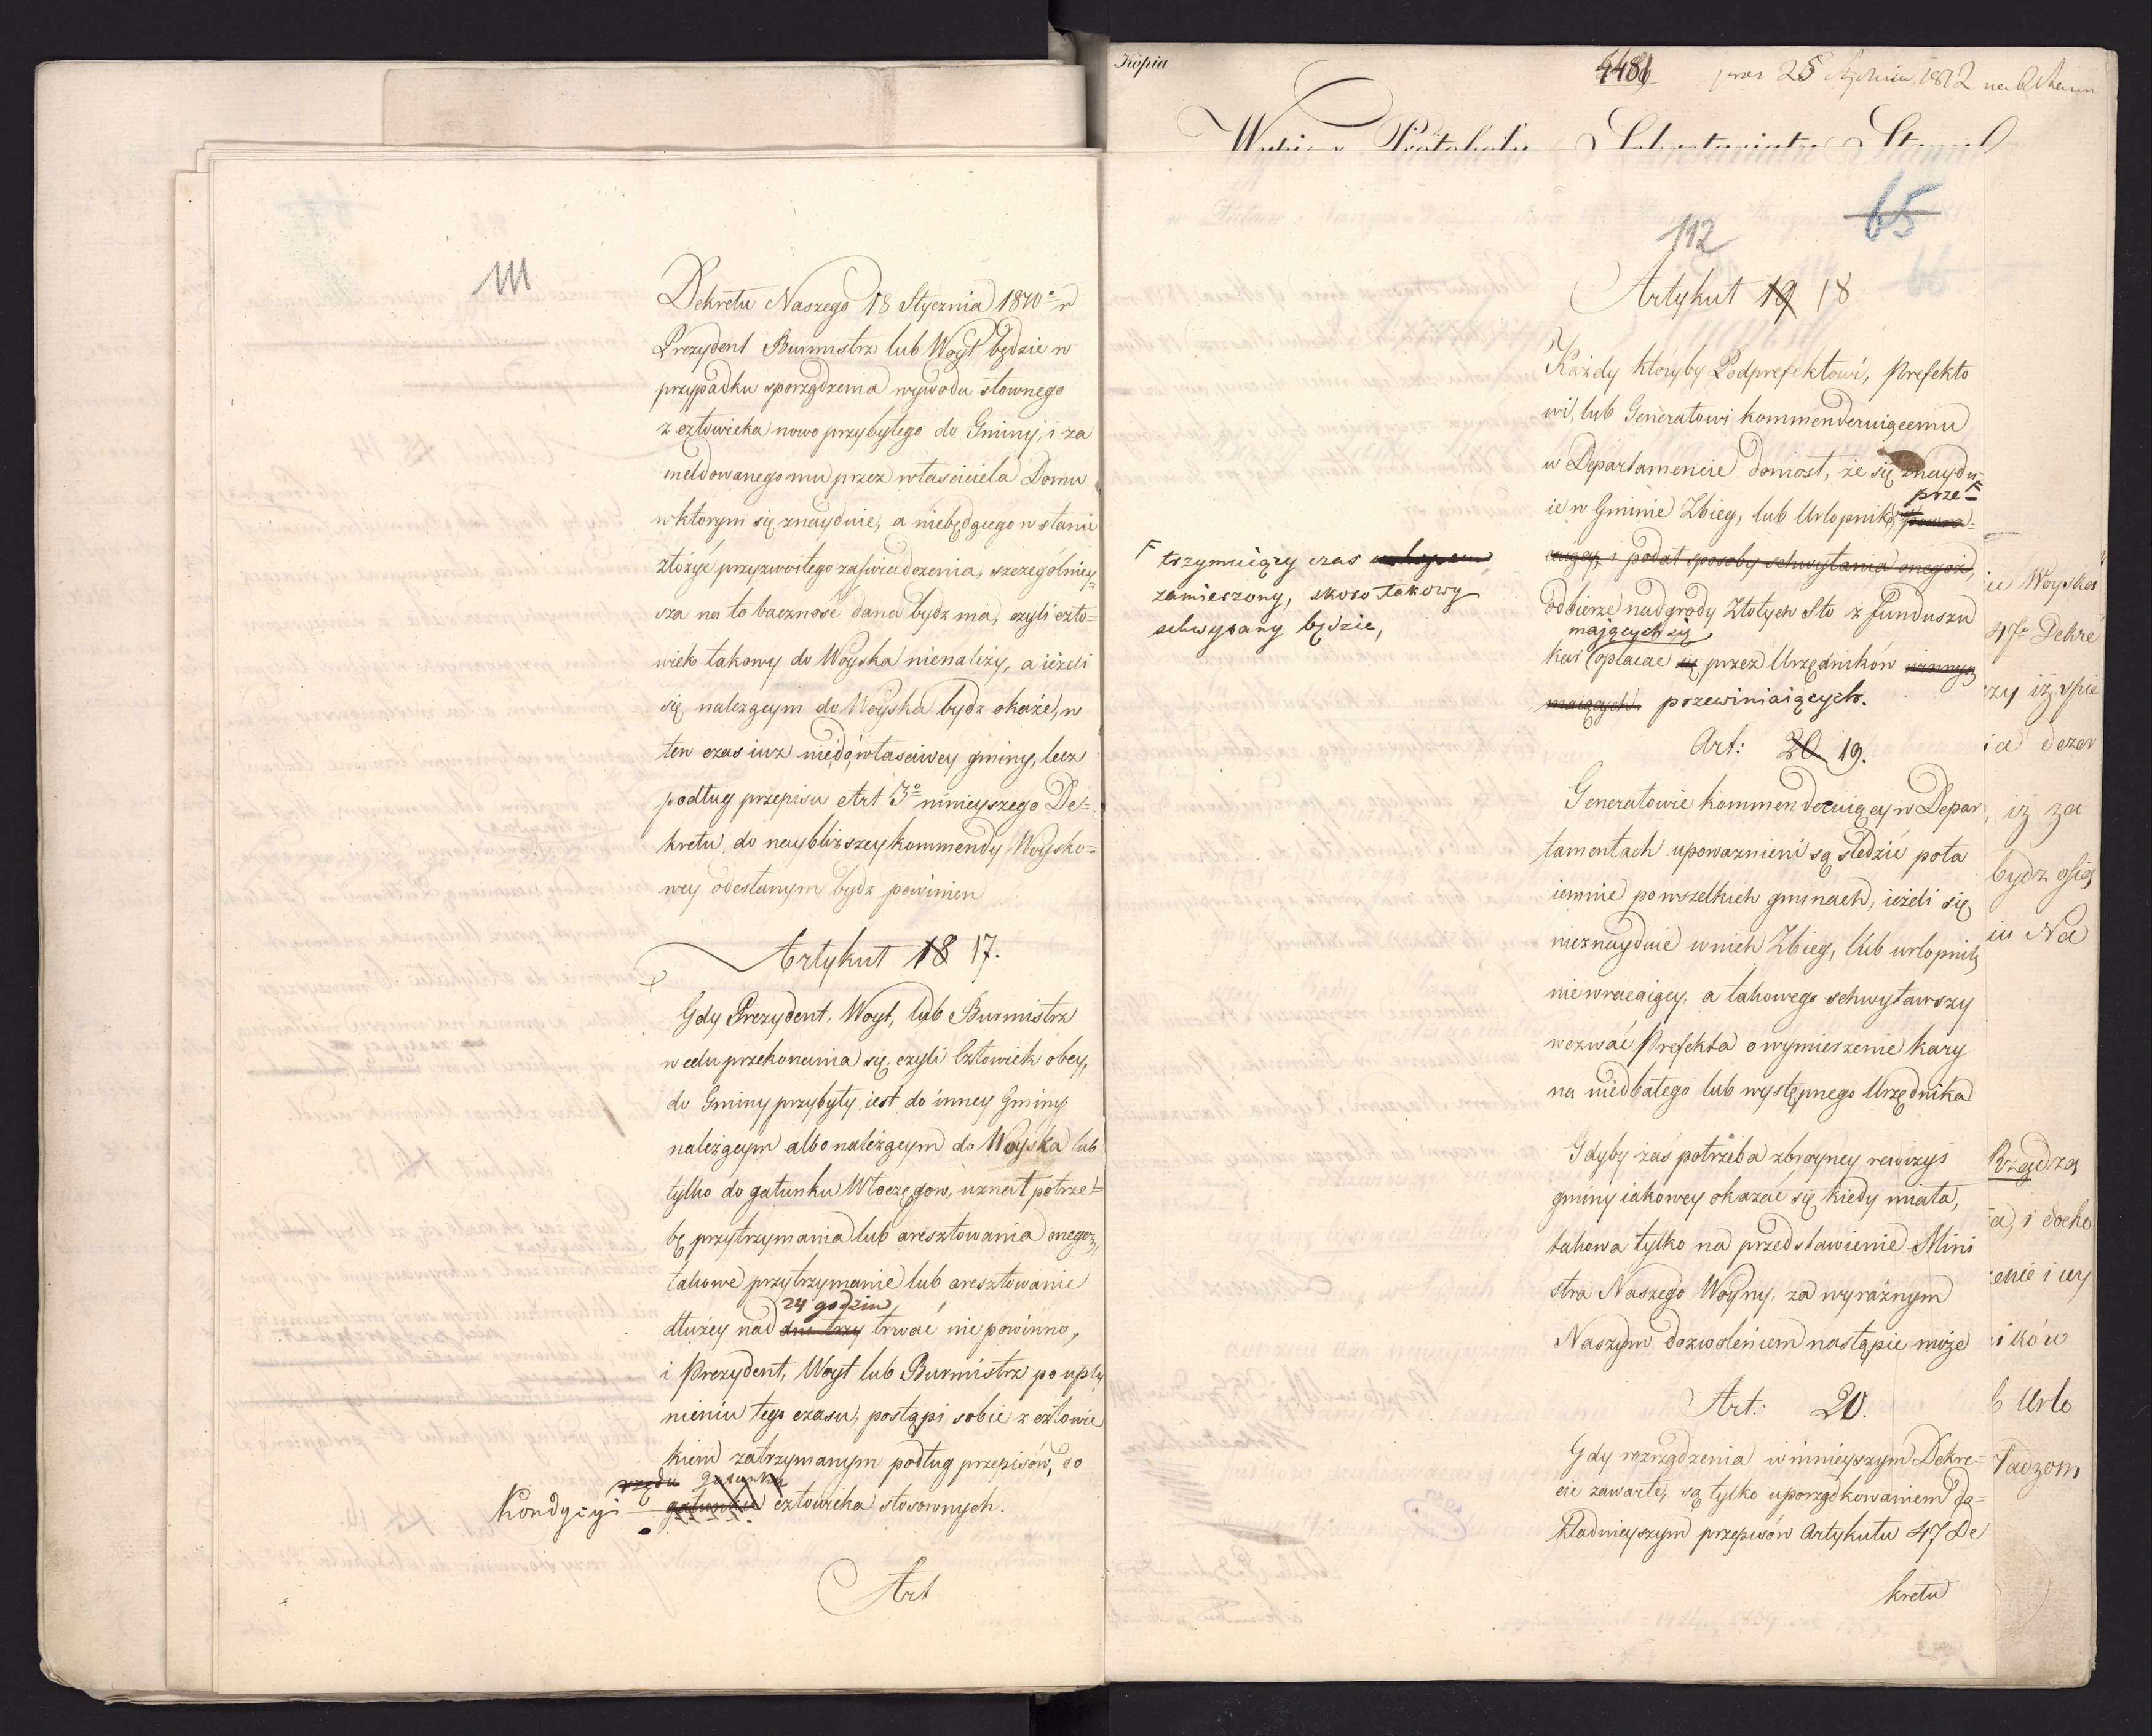 111
Dekretu Naszego 18 Stycznia 1810º r
Prezydent Burmistrz lub Woyt będzie w
przypadku sporządzenia wywodu słownego
z człowieka nowo przybyłego do Gminy, i za
meldowanego mu przez własciciela Domu
w ktorym się znayduie, a niebędącego w stanie
złożyć przyzwoitego zaświadczenia, szczególniey=
sza na to baczność dana bydz ma, czyli czło=
wiek takowy do Woyska nienależy, a ieżeli
się należącym do Woyska bydz okaże, w
ten czas iuz nie do właściwey gminy, lecz
podług przepisu Art 3º ninieyszego De=
kretu, do naybliższey kommendy Woysko=
wey odesłanym bydz powinien
Artykuł 18 17.
Gdy Prezydent, Woyt, lub Burmistrz
w celu przekonania się, czyli Człowiek obcy,
do Gminy przybyły, iest do inney Gminy
należącym albo należącym do Woyska lub
tylko do gatunku Włoczęgow, uznał potrze=
bę przytrzymania lub aresztowania onegoz,
takowe przytrzymanie lub aresztowanie
24 godzin
dłużey nad dni trzy trwać nie powinno,
i Prezydent, Woyt lub Burmistrz po upły
nieniu tego czasu, postąpi sobie z człowie
kiem zatrzymanym podług przepisów, do
rzędu gatunku
Kondycyi gatunku człowieka stosownych.
Art
Kopia
4481 25 Stycznia 1812
Wypis z Protokołu Sekretariatu Stanu
65
112
Artykuł 19 18
Każdy któryby Podprefektowi, Prefekto
wi, lub Generałowi kommenderuiącemu
w Departamencie doniosł, że się znaydu=
prze=
ie w Gminie Zbieg, lub Urlopnik, powra=
caiący i podał sposoby schwytania onegoż,
F trzymuiący czas urlopem
zamierzony, skoro takowy
schwytany będzie,
odbierze nadgrody Złotych Sto z funduszu
mających się
kar opłacać się przez Urzędników winnych
maiących przewiniaiących.
Art: 20 19.
Generałowie kommenderuiący w Depar
tamentach upoważnieni są śledzić pota
iemnie po wszelkich gminach, ieżeli się
nieznayduie w nich Zbieg, lub urlopnik
niewracaiący, a takowego schwytawszy
wezwać Prefekta o wymierzenie kary
na niedbałego lub występnego Urzędnika
Gdyby zas potrzeba zbroyney rewizyi
gminy iakowey okazać się kiedy miała,
takowa tylko na przedstawienie Mini
stra Naszego Woyny, za wyraźnym
Naszym dozwoleniem nastąpic może
Art: 20.
Gdy rozrządzenia w ninieyszym Dekre=
cie zawarte, są tylko uporządkowaniem do=
kładnieyszym przepisów Artykułu 47 De
kretu
ie Woysko
47º Dekre
zy iż spie
ia dezer
, iż za
bydz osią
iu Na
Rządza
a, i docho
enie i iey
ików
b Urlo
Władzom